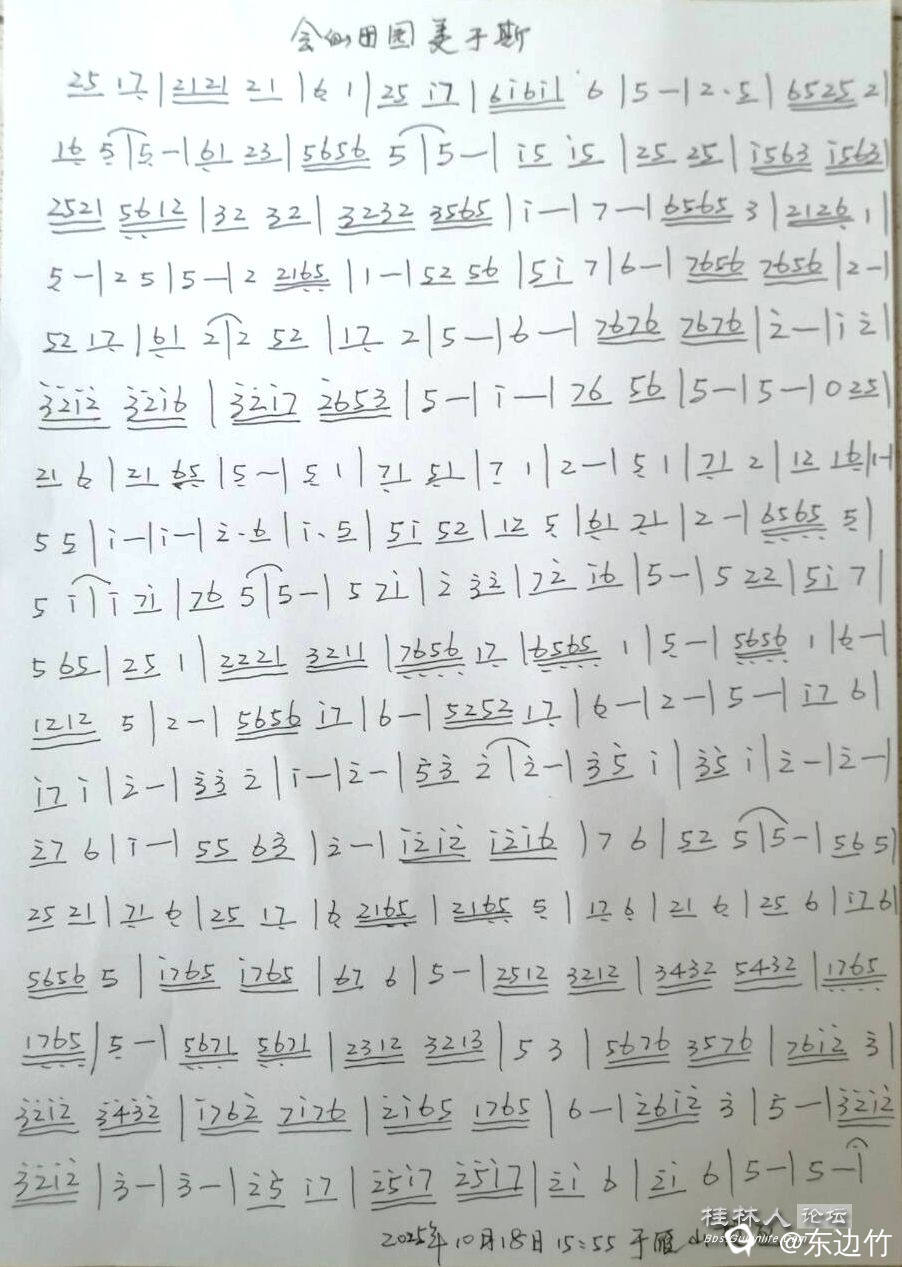 会仙田园美于斯
25 17 | 2121 21 | 6 1 | 25 i7 | 6i6i 6 | 5 - | 2 · 5 | 6525 2 |
16 5 | 5 - | 61 23 | 5656 5 | 5 - | i5 i5 | 25 25 | i563 i563 |
2521 5612 | 32 32 | 3232 3565 | i - | 7 - | 6565 3 | 2126 1 |
5 - | 2 5 | 5 - | 2 2165 | 1 - | 52 56 | 5i 7 | 6 - | 7656 7656 | 2 - |
52 17 | 61 2 | 2 52 | 17 2 | 5 - | 6 - | 7676 7676 | 2̇ - | i 2̇ |
3̇2̇i2̇ 3̇2̇i6 | 3̇2̇i7 2̇653 | 5 - | i - | 76 56 | 5 - | 5 - | 0 25 |
21 6 | 21 65 | 5 - | 5 1 | 71 51 | 7 1 | 2 - | 5 1 | 71 2 | 12 16 | 1 - |
5 5 | i - | i - | 2̇ · 6 | i · 5 | 5i 52 | 12 5 | 61 21 | 2 - | 6565 5 |
5 i | i 7i | 76 5 | 5 - | 5 7i | 2̇ 3̇2̇ | 72̇ i6 | 5 - | 5 22 | 5i 7 |
5 65 | 25 1 | 2221 3211 | 7656 17 | 6565 1 | 5 - | 5656 1 | 6 - |
1212 5 | 2 - | 5656 i7 | 6 - | 5252 17 | 6 - | 2 - | 5 - | i7 6 |
i7 i | 2̇ - | 3̇3̇ 2̇ | i - | 2̇ - | 5̇3̇ 2̇ | 2̇ - | 3̇5̇ i | 3̇5̇ i | 2̇ - | 2̇ - |
2̇7 6 | i - | 55 63̇ | 2̇ - | i2̇i2̇ i2̇i6 | 7 6 | 52 5 | 5 - | 56 5 |
25 21 | 71 6 | 25 17 | 6 2165 | 2165 5 | 17 6 | 21 6 | 25 6 | i7 6 |
5656 5 | i765 i765 | 67 6 | 5 - | 2512 3212 | 3432 5432 | 1765
1765 | 5 - | 5671 5671 | 2312 3213 | 5 3 | 5676 3576 | 76i2̇ 3̇ |
3̇2̇i2̇ 3̇4̇3̇2̇ | i762̇ 7i76 | 2̇i65 1765 | 6 - | 2̇6i2̇ 3̇ | 5̇ - | 3̇2̇i2̇
3̇2̇i2̇ | 3̇ - | 3̇ - | 2̇5̇ i7 | 2̇5̇i7 2̇5̇i7 | 2̇i 6 | 2̇i 6 | 5 - | 5 - |
2025年10月18日 15:55 于雁山
桂林人论坛
@东边竹